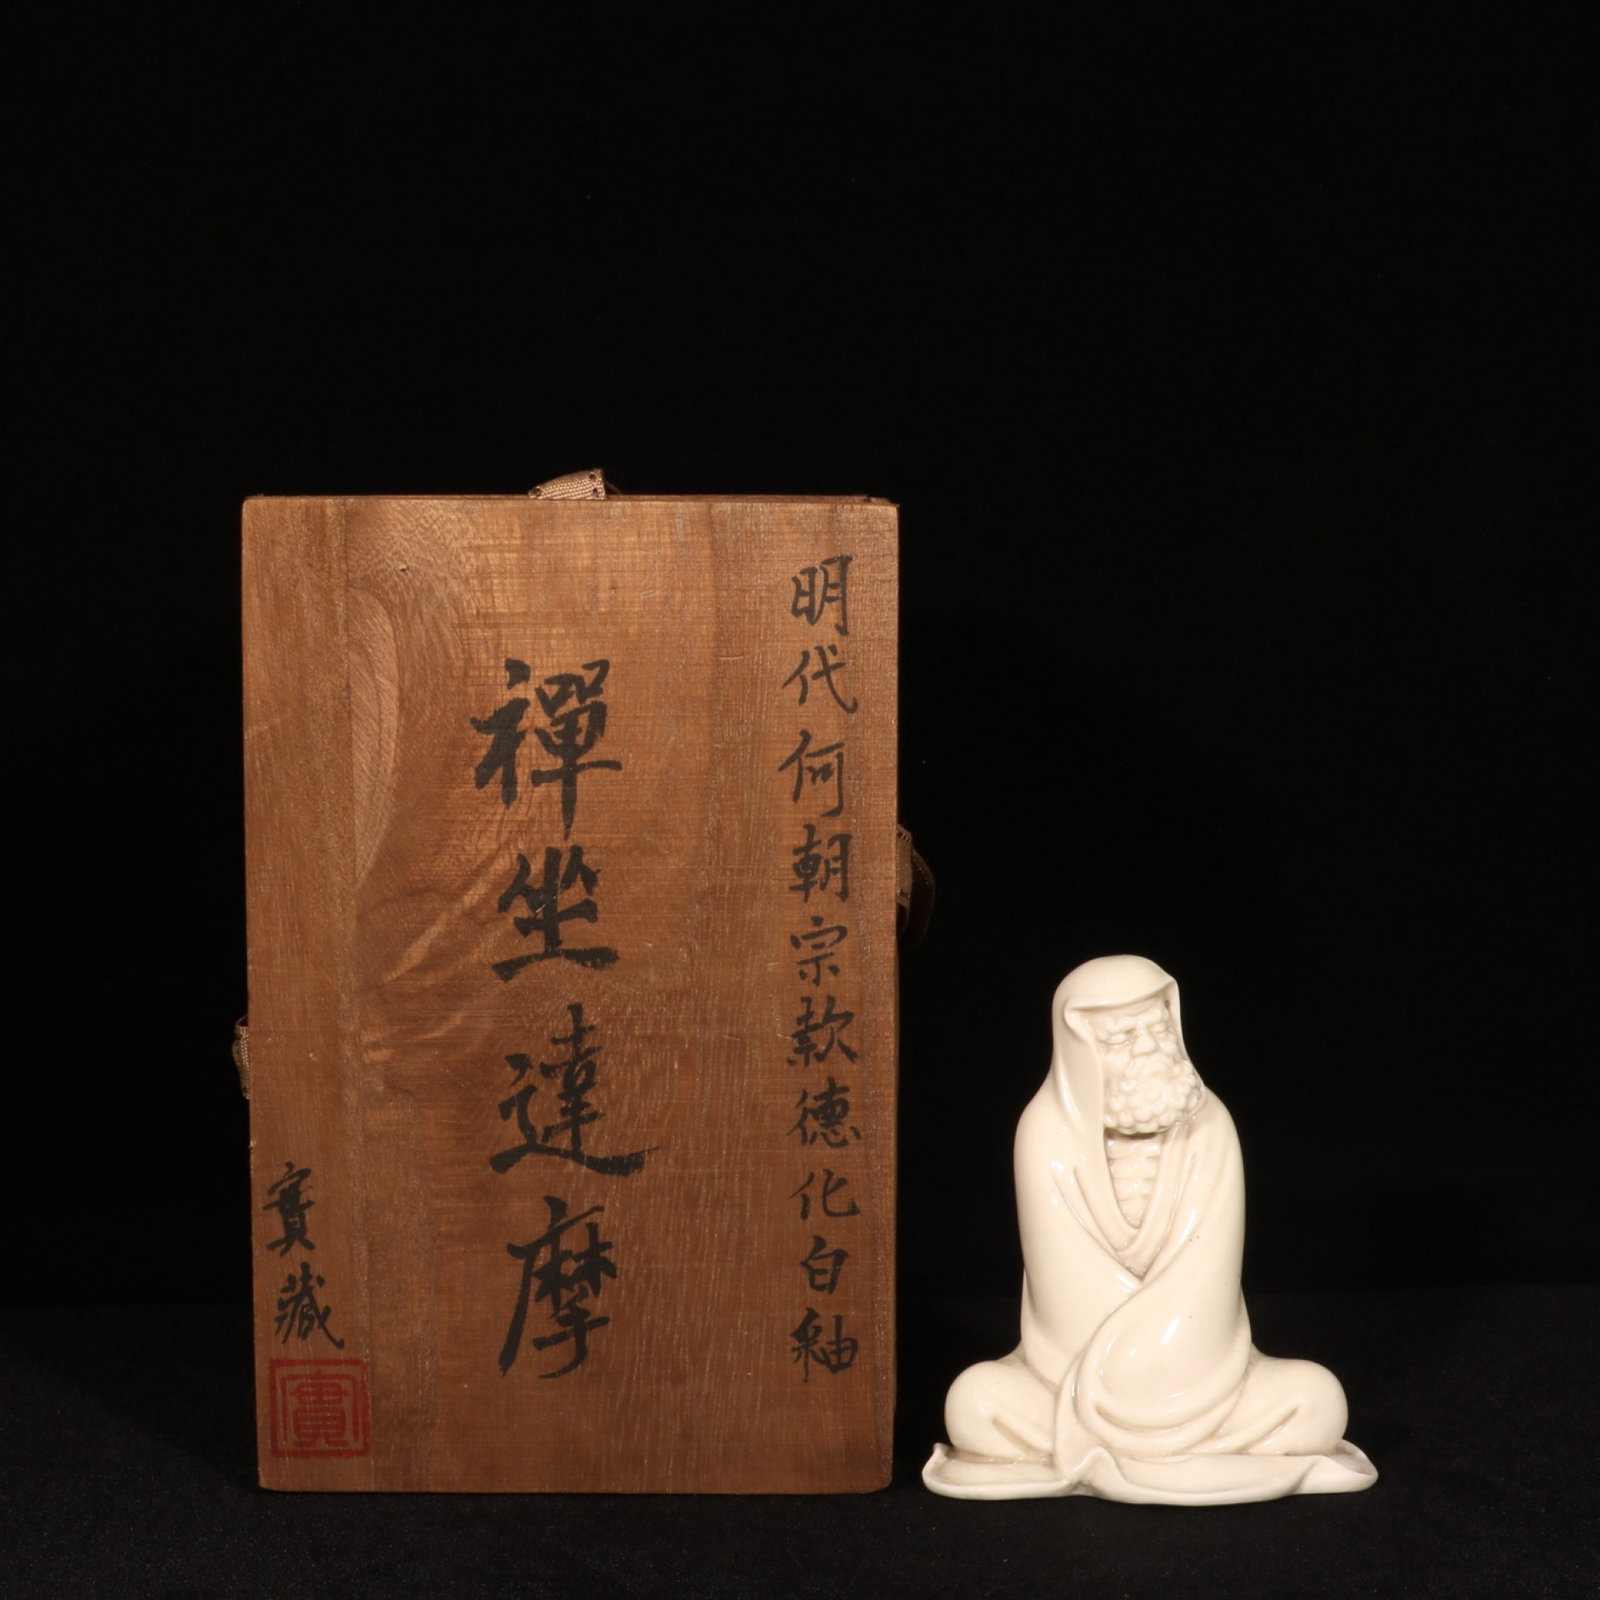 明代何朝宗款德化白釉
禪坐達摩
寶藏
寶